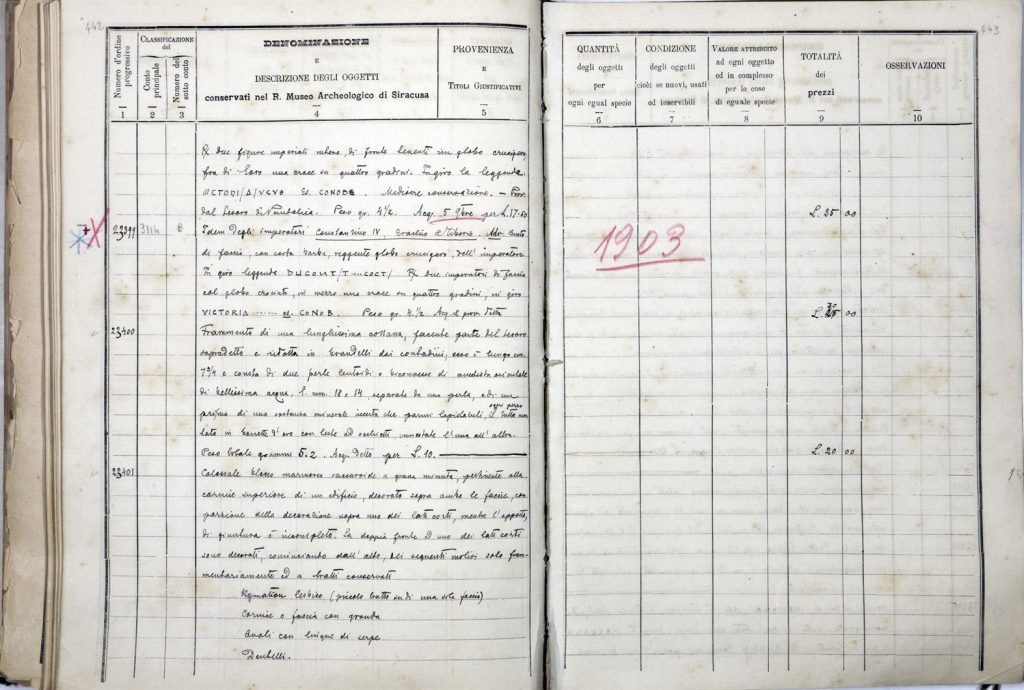 442
Numero d'ordine progressivo
CLASSIFICAZIONE del
Conto principale
Numero del sotto conto
DENOMINAZIONE
E
DESCRIZIONE DEGLI OGGETTI
conservati nel R. Museo Archeologico di Siracusa
PROVENIENZA
E
TITOLI GIUSTIFICATIVI
1 2 3 4 5
due figure imperiali intere, di fronte tenenti un globo crucigero,
fra di loro una croce su quattro gradini. In giro la leggenda
CONOB. Mediocre conservazione. — Prov.
dal tesoro di Pantalica. Peso gr. 4 1/2. Acq. 5 9bre per L. 17.50
23399 3114 B Idem degli imperatori Constantino IV, Eraclio e Tiberio. Adv. Busto
di faccia, con corta barba, reggente globo crucigero, dell'imperatore
In giro leggenda
due imperatori di faccia
col globo crociato, in mezzo una croce su quattro gradini, in giro
VICTORIA ........ es. CONOB. Peso gr. 4.1/2 Acq. e prov. detta
23400 Frammento di una lunghissima collana, facente parte del tesoro
sopradetto e ridotta in brandelli dai contadini, esso è lungo cm.
7 3/4 e consta di due perle lentoidi o biconvesse di ametista
di bellissima acqua, l. mm. 18 e 14, separate da una perla, e di un
prisma di una sostanza minerale incerta che parmi lapislazuli, il tutto
ogni pezzo
lato in barrette d'oro con teste ad occhietti, innestate l'una all'altra.
Peso totale grammi 5.2. Acq. detto per L. 10.
23401 Colossale blocco marmoreo saccaroide a grana minuta, pertinente alla
cornice superiore di un edificio, decorato sopra ambo le faccie, con
porzione della decorazione sopra uno dei lati corti, mentre l'opposto,
di giuntura è incompleto. La doppia fronte ed uno dei lati corti
sono decorati, cominciando dall'alto, dei seguenti motivi solo fram-
mentariamente ed a tratti conservati
Kymation lesbico (piccolo tratto su di una sola faccia)
Cornice o fascia con
Ovoli con lingue di serpe
Dentelli.
443
QUANTITÀ
degli oggetti
per
ogni egual specie
CONDIZIONE
degli oggetti
cioè: se nuovi, usati
od inservibili
VALORE ATTRIBUITO
ad ogni oggetto
ed in complesso
per le cose
di eguale specie
TOTALITÀ
dei
prezzi
OSSERVAZIONI
6 7 8 9 10
L. 25 00
1903
L. 00
L. 20 00